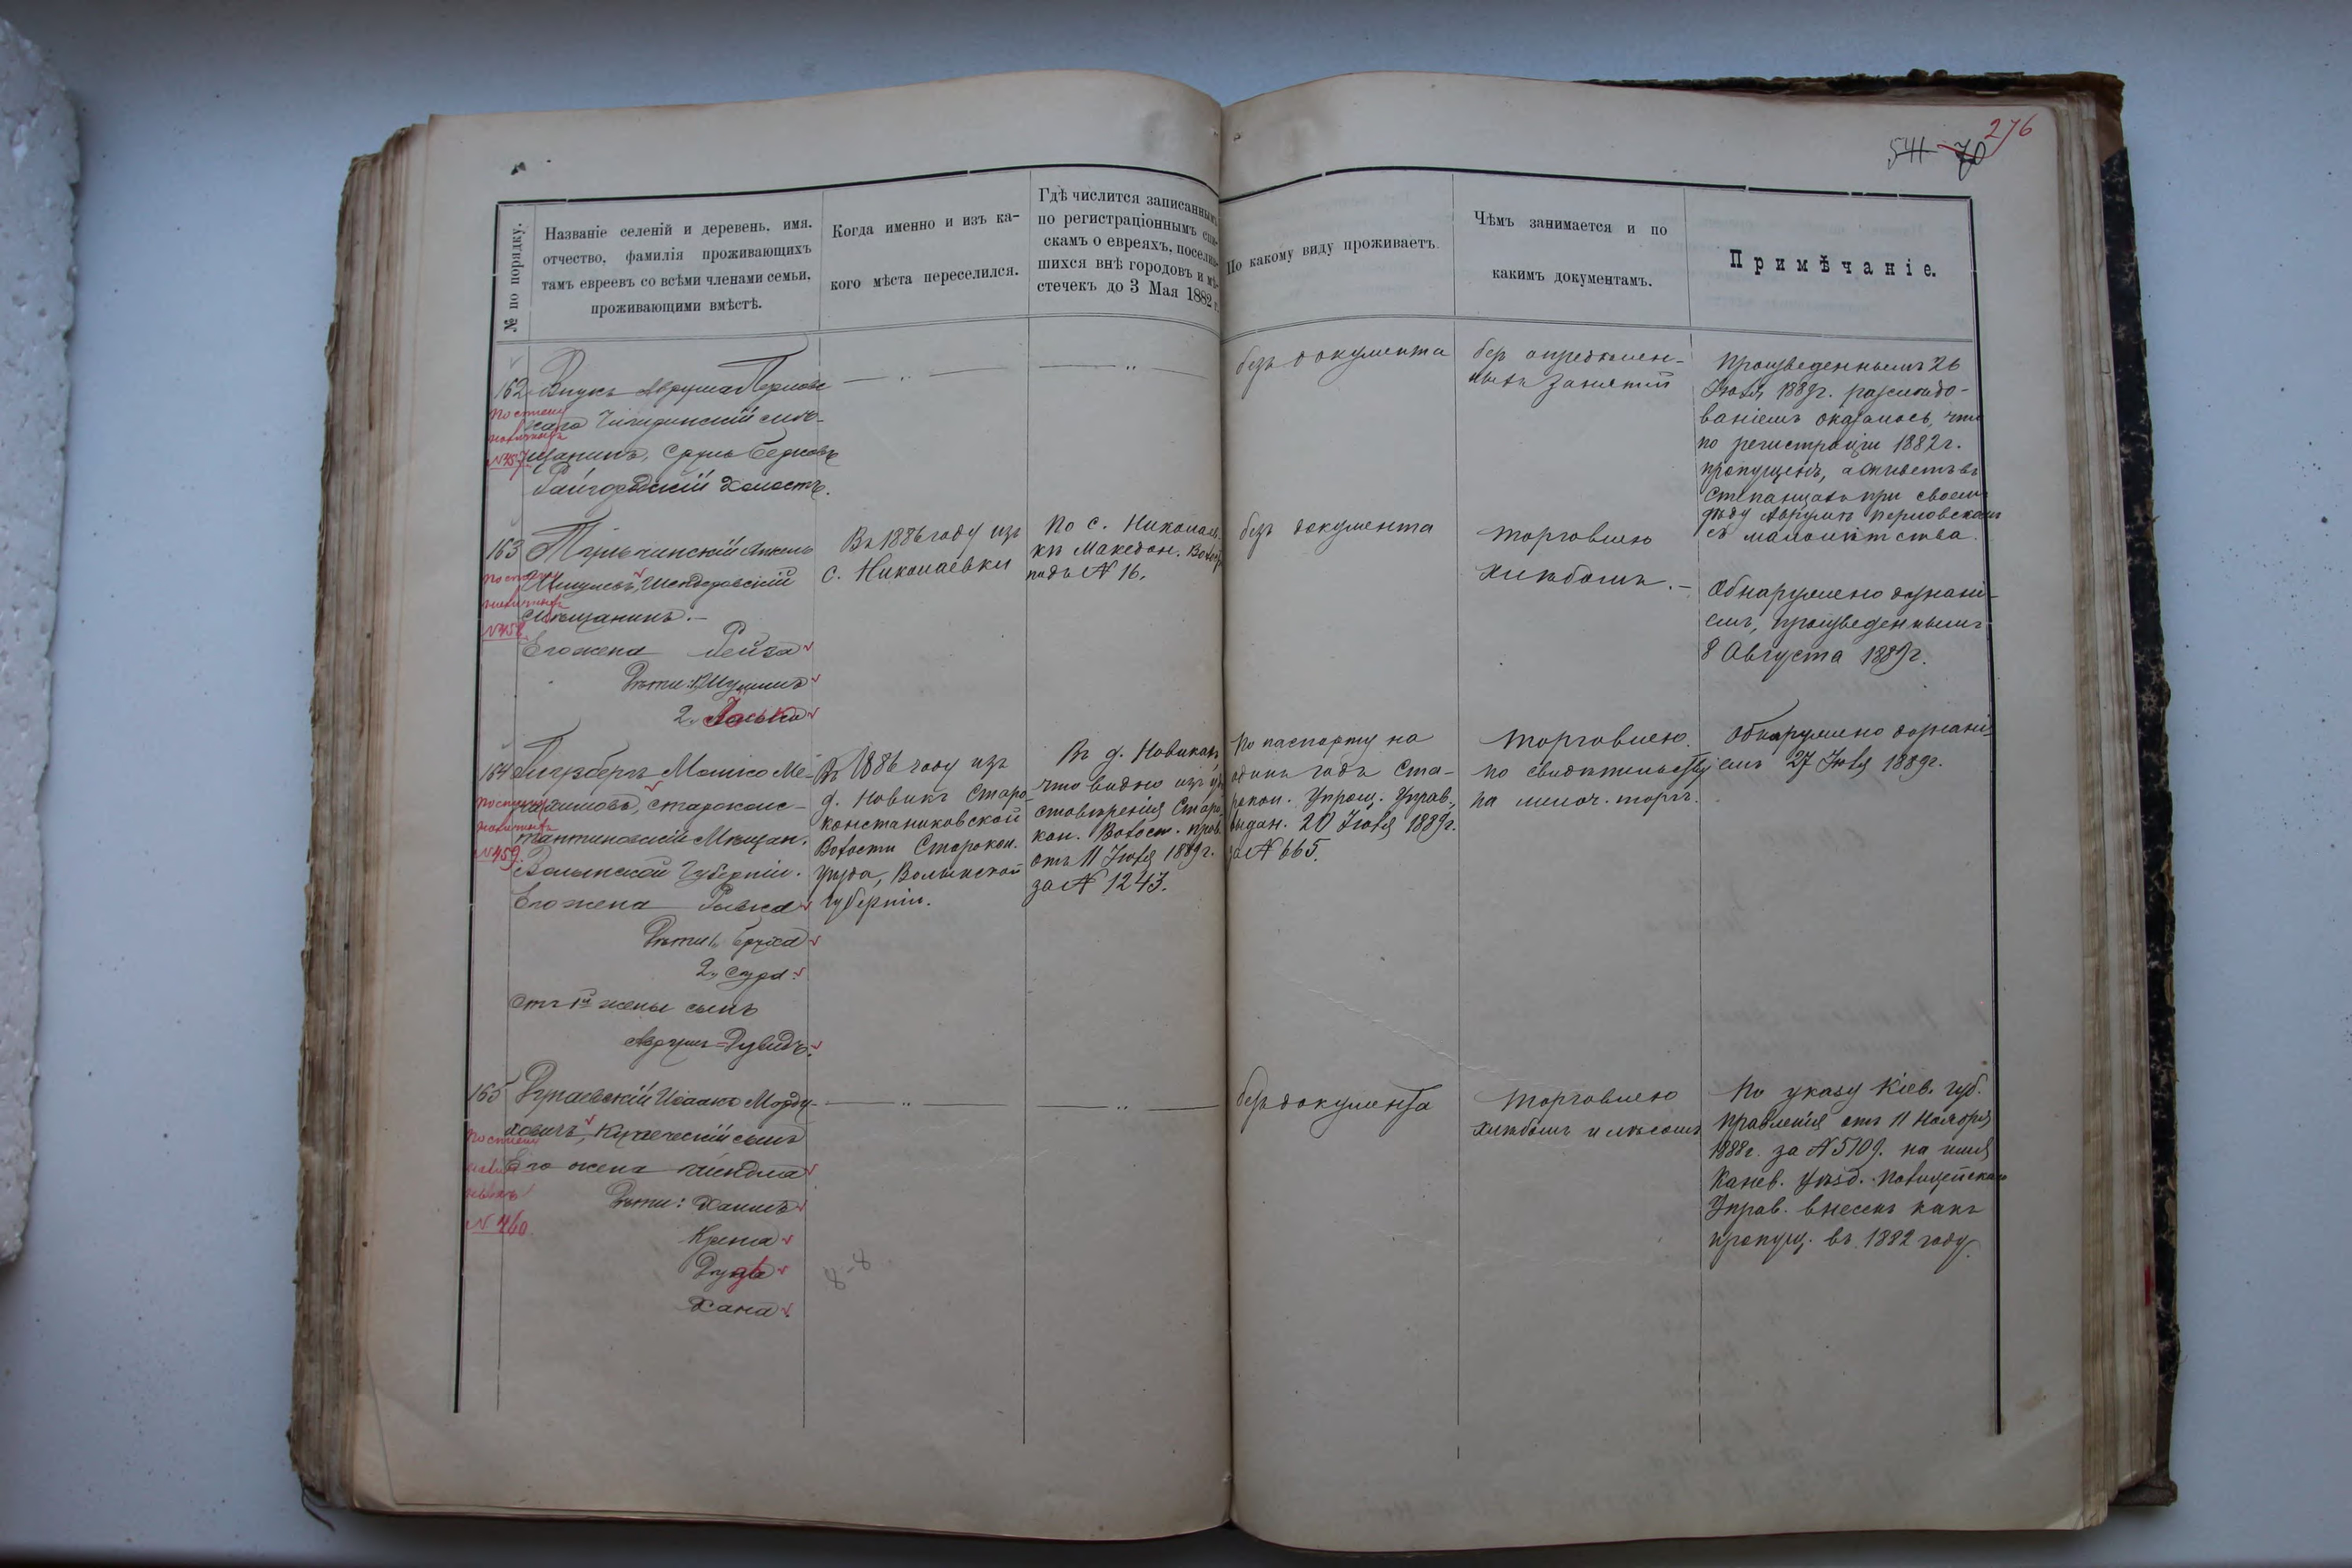 276
541 70
№ по порядку.
Названіе селеній и деревень, имя,
отчество, фамилія проживающихъ
тамъ евреевъ со всѣми членами семьи,
проживающими вмѣстѣ.
Когда именно и изъ ка-
кого мѣста переселился.
Гдѣ числится записаннымъ
по регистраціоннымъ спи-
скамъ о евреяхъ, поселив-
шихся внѣ городовъ и мѣ-
стечекъ до 3 Мая 1882 г.
По какому виду проживаетъ.
Чѣмъ занимается и по
какимъ документамъ.
Примѣчаніе.
162 Внукъ Аврума Перлов-
скаго Чигиринскій мѣ-
щанинъ, Сруль Берковъ
Райгородскій холостъ.
№457
— „ —
— „ —
безъ документа
безъ опредѣлен-
ныхъ занятій
Произведеннымъ 26
Іюля 1889г. разслѣдо-
ваніемъ оказалось, что
по регистраціи 1882г.
пропущенъ, а живетъ въ
Степанцахъ при своемъ
дѣду Аврумѣ Перловскомъ
съ малолѣтства.
163 Тульчинскій
Шендеровскій
мѣщанинъ.-
№458
Его жена Рейза
Дѣти: 1,
2,
Въ 1886 году изъ
с. Николаевки
По с. Николаев-
кѣ Македон. Волости
подъ № 16.
безъ документа
торговлею
хлѣбомъ.-
Обнаружено дознані-
емъ, произведеннымъ
8 Августа 1889г.
164 Гинзбергъ Мошко Ме-
Старокон-
стантиновскій Мѣщан.
№459.
Волынской Губерніи.
Его жена Ривка
Дѣти 1, Бруха
2, Сура
отъ 1й жены сынъ
Аврумъ-Дувидъ.
Въ 1886 году изъ
д. Новики Старо-
константиновской
Волости Старокон.
уѣзда, Волынской
губерніи.
Въ д. Новикахъ
что видно изъ удо-
стовѣренія Старо-
кон. Волост. прав.
отъ 11 Іюля 1889г.
за № 1243.
По паспорту на
одинъ годъ Ста-
рокон. Упрощ. Управ.,
выдан. 20 Іюля 1889г.
за № 665.
торговлею
по свидѣтельству
на мелоч. торгъ.
Обнаружено дознані-
емъ 27 Іюля 1889г.
165 Дунаевскій Исаакъ Морду-
ховичъ, Купеческій сынъ
Его жена Гиндла
Дѣти: Хаимъ
Хана
№ 460.
8-8
— „ —
— „ —
безъ документа
торговлею
хлѣбомъ и лѣсомъ
По указу Кіев. губ.
правленія отъ 11 Ноября
1888г. за № 5109. на имя
Канев. уѣзд. Полицейскаго
Управ. внесенъ какъ
пропущ. въ 1882 году.